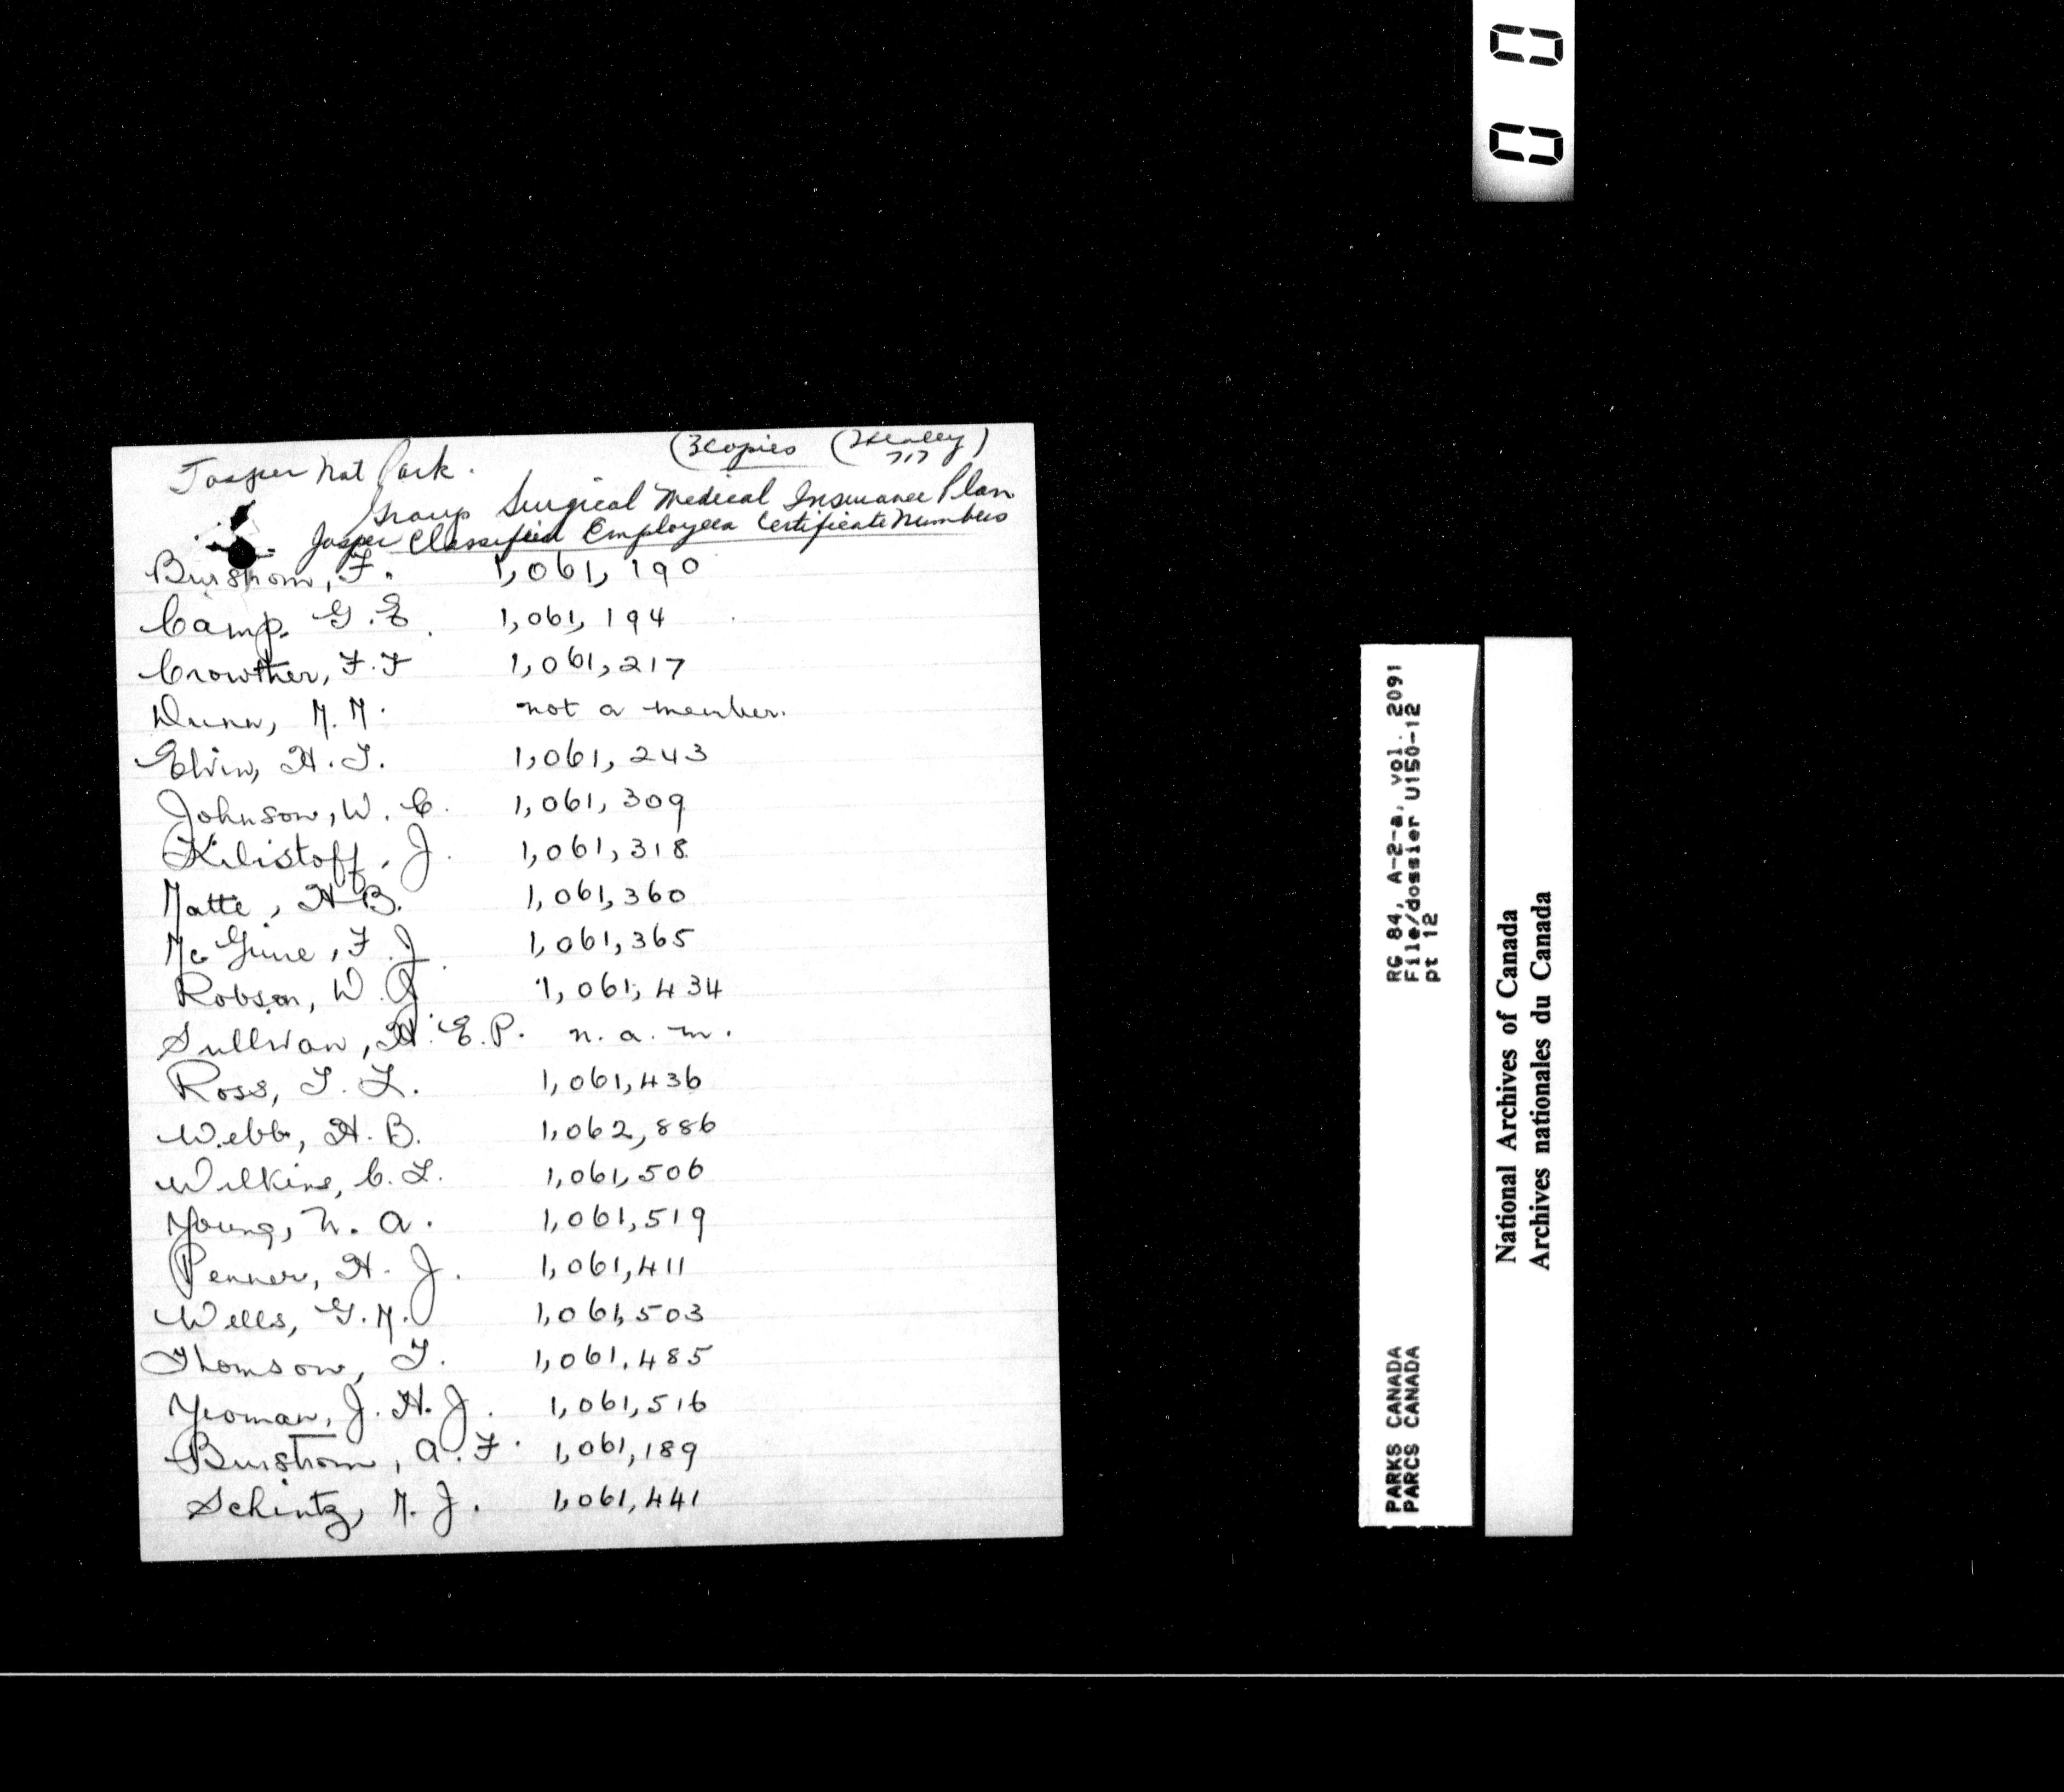 Jasper Nat Park.
(3 copies
Group Surgical Medical Insurance Plan
Jasper Classified Employees Certificate Numbers
Burstrom, F. 1,061,190
Camp, G.E. 1,061,194
Crowther, F.F 1,061,217
Dunn, M.M. not a member.
Elvin, H.T. 1,061,243
Johnson, W.C. 1,061,309
Kilistoff, J. 1,061,318
Matte, H.B. 1,061,360
McGuire, F.J. 1,061,365
Robson, W.J. 1,061,434
Sullivan, H.E.P. n.a.m.
Ross, T.L. 1,061,436
Webb, H.B. 1,062,886
Wilkins, C.L. 1,061,506
Young, N.A. 1,061,519
Penner, H.J. 1,061,411
Wells, G.M. 1,061,503
Thomson, T. 1,061,485
Yeoman, J.H.J. 1,061,516
Burstrom, A.F. 1,061,189
Schintz, M.J. 1,061,441
0 0
RG 84, A-2-a, vol. 2091
File/dossier U150-12
pt 12
PARKS CANADA
PARCS CANADA
National Archives of Canada
Archives nationales du Canada